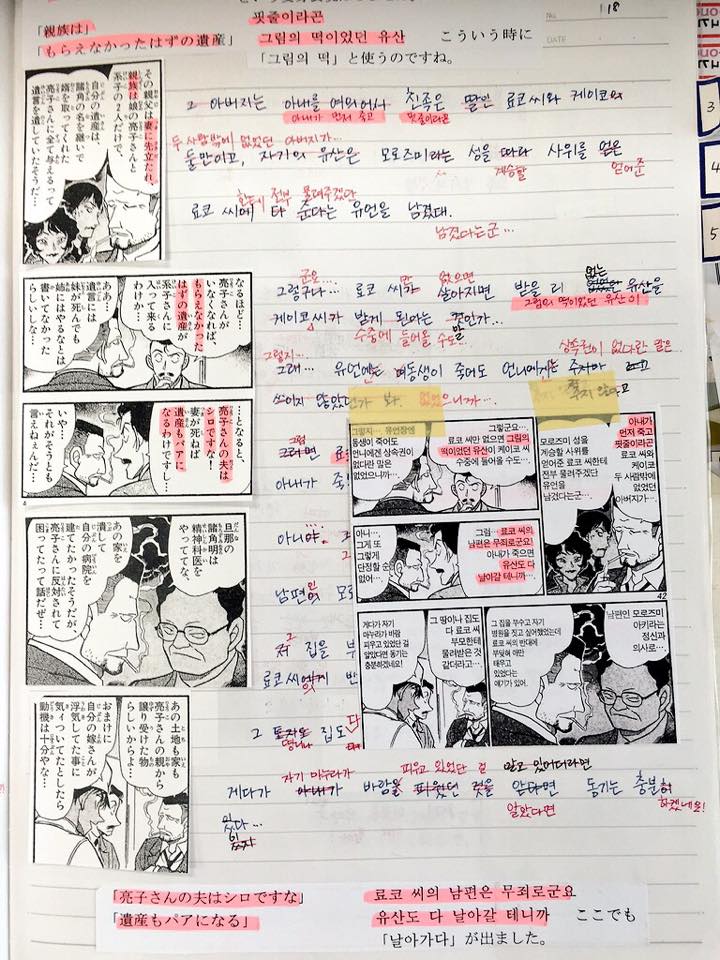 「親族は」
「もらえなかったはずの遺産」
핏줄이라곤
그림의 떡이었던 유산
こういう時に
「그림의 떡」と使うのですね。
No.
118
DATE
その親父は妻に先立たれ、
親族は娘の亮子さんと
系子の2人だけで、
自分の遺産は、
諸角の名を継いで
婿を取ってくれた
亮子さんに全て与えるって
遺言を遺していたそうだ…
그 아버지는 아내를 여의어서 친족은 딸인 료코씨와 케이코의
아내가 먼저 죽고
핏줄이라곤
두 사람밖에 없었던 아버지가…
둘만이고, 자기의 유산은 모로즈미라는 성을 따라 사위를 얻은
계승할
얻어준
전부 물려주겠다
료코 씨에 다 준다는 유언을 남겼대.
남겼다는군…
なるほど…
亮子さんが
いなくなれば、
もらえなかった
はずの遺産が
系子さんに
入って来る
わけか…
ああ…
遺言には
妹が死んでも
姉にはやるなとは
書いてなかった
らしいしな…
군요…
만 없으면
없는
그렇구나… 료코 씨가 살아지면 받을 리 유산을
그림의 떡이었던 유산이
케이코씨가 받게 된다는 것인가…
수중에 들어올 수도…
그렇지…
상속권이 없다란 말은
그래… 유언에는 여동생이 죽어도 언니에겐 주지마
쓰이지 않았던가 봐. 없었으니까…
주지 않다고
…となると、
亮子さんの夫は
シロですな！
妻が死ねば
遺産もパアに
なるわけですし…
いや…
それがそうとも
言えねぇんだ…
4
그럼
그러면 료
아내가 죽
아니야.
남편인 모로
그
저 집을 부
료코씨에게 반
旦那の
諸角明は
精神科医を
やっててな、
あの家を
潰して
自分の病院を
建てたかったそうだが、
亮子さんに反対されて
困ってたって話だぜ…
あの土地も家も
亮子さんの親から
譲り受けた物
らしいからよ…
おまけに
自分の嫁さんが
浮気してた事に
気ィついてたとしたら
動機は十分やな…
아내가
먼저 죽고
핏줄이라곤
료코 씨와
케이코
두 사람밖에
없었던
아버지가…
모로즈미 성을
계승할 사위를
얻어준 료코 씨한테
전부 물려주겠다
유언을
남겼다는군…
그렇군요…
료코 씨만 없으면 그림의
떡이었던 유산이 케이코 씨
수중에 들어올 수도…
그렇지… 유언장엔
동생이 죽어도
언니에겐 상속권이
없다란 말은
없었으니까…
42
그럼… 료코 씨의
남편은 무죄로군요!
아내가 죽으면
유산도 다
날아갈 테니까…
아니…
그게 또
그렇게
단정할 순
없어…
남편인 모로즈미
아키라는
정신과
의사로…
그 집을 부수고 자기
병원을 짓고 싶어했었는데
료코 씨의 반대에
부딪혀 애만
태우고
있었다는
얘기가 있어.
그 땅이나 집도
다 료코 씨
부모한테
물려받은 것
같더라고…
게다가 자기
마누라가 바람
피우고 있었단 걸
알았다면 동기는
충분하겠네요!
그 토지도 집도 다
땅이나
자기 마누라가
피우고 있었단 걸
알고 있어더라면
게다가 아내가 바람을 피웠던 것을 안다면 동기는 충분히
알았다면
하겠네요!
있다…
「亮子さんの夫はシロですな」
료코 씨의 남편은 무죄로군요
「遺産もパアになる」
유산도 다 날아갈 테니까
ここでも
「날아가다」が出ました。
3
4
5